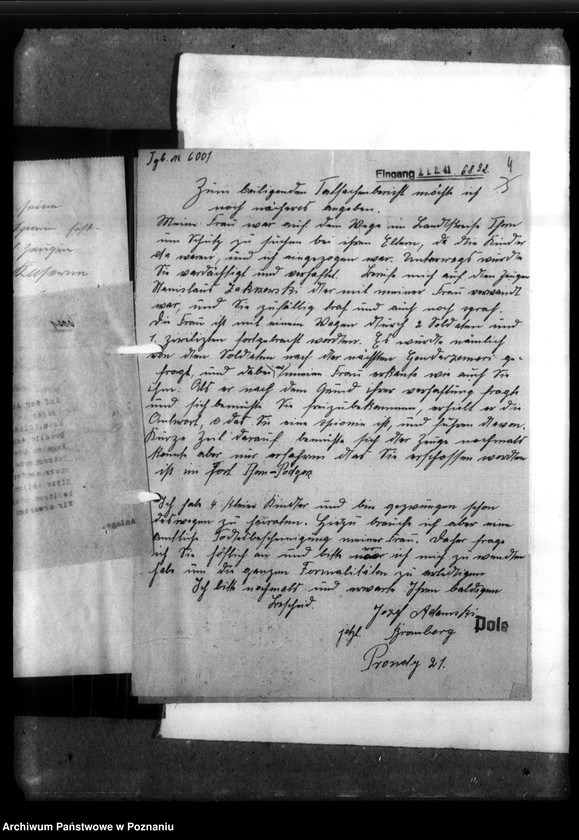 Tgb. nr 6001
Eingang 21.2.41 6892
4
Zum beiligenden Tatsachenbericht möchte ich
noch näheres angeben.
Meine Frau war auf dem Wege im Landkreise Thorn
um Schutz zu suchen bei ihren Eltern, da die Kinder
da waren, und ich eingezogen war. Unterwegs würde
Sie verdächtigt und verhaftet. Berufe mich auf den Zeugen
Stanislaus der mit meiner Frau verwandt
war, und Sie zufällig traf und auch noch sprach.
Die Frau ist mit einem Wagen durch 2 Soldaten und
1 Zivilisten fortgebracht worden. Es würde nämlich
von den Soldaten nach der nächsten Gendarmerie ge-
fragt, und dabei meine Frau erkante wie auch Sie
ihm. Als er nach dem Gründ ihrer verhaftung fragte
und sich bemühte Sie freizubekommen, erhielt er die
Antwort, das Sie eine Spionin ist, und führen davon.
Kürze Zeit darauf bemühte sich der Zeuge nochmals
konnte aber nur erfahren das Sie erschossen worden
ist im Fort Thorn-Podgorz
Ich habe 4 kleine Kinder und bin gezwungen schon
deswegen zu heiraten. Hierzu brauche ich aber eine
amtliche Todtesbescheinigung meiner Frau. Daher frage
ich Sie höflich an und bitte wo ich mich zu wenden
habe um die ganzen Formalitäten zu erledigen
Ich bitte nochmals und erwarte Ihren baldigen
Bescheid.
Jozef Adamski
jetzt Bromberg Pole
Prondy 21.
Anlage
Archiwum Państwowe w Poznaniu